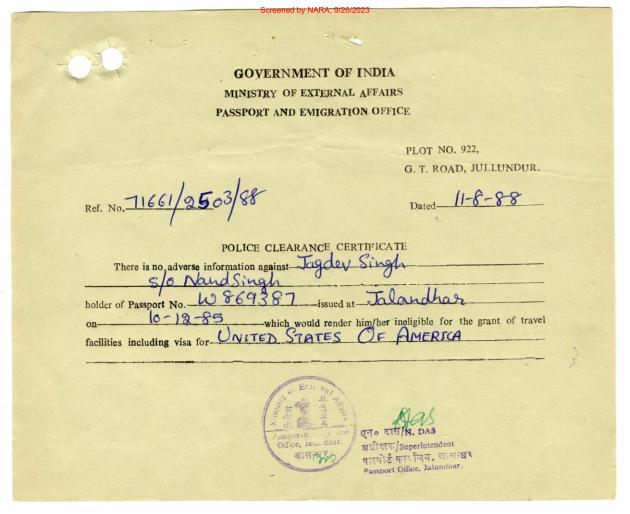 Screened by NARA, 9/26/2023
GOVERNMENT OF INDIA
MINISTRY OF EXTERNAL AFFAIRS
PASSPORT AND EMIGRATION OFFICE
PLOT NO. 922,
G. T. ROAD, JULLUNDUR.
Ref. No. 71661/2503/88 Dated 11-8-88
POLICE CLEARANCE CERTIFICATE
There is no adverse information against Jagdev Singh
s/o Nand Singh
holder of Passport No. W869387 issued at Jalandhar
on 10-12-85 which would render him/her ineligible for the grant of travel
facilities including visa for UNITED STATES OF AMERICA
Ministry of External Affairs
Office, Jalandhar.
Das
एन० दास/N. DAS
अधीक्षक/Superintendent
पासपोर्ट कार्यालय, जालन्धर
Passport Office, Jalandhar.